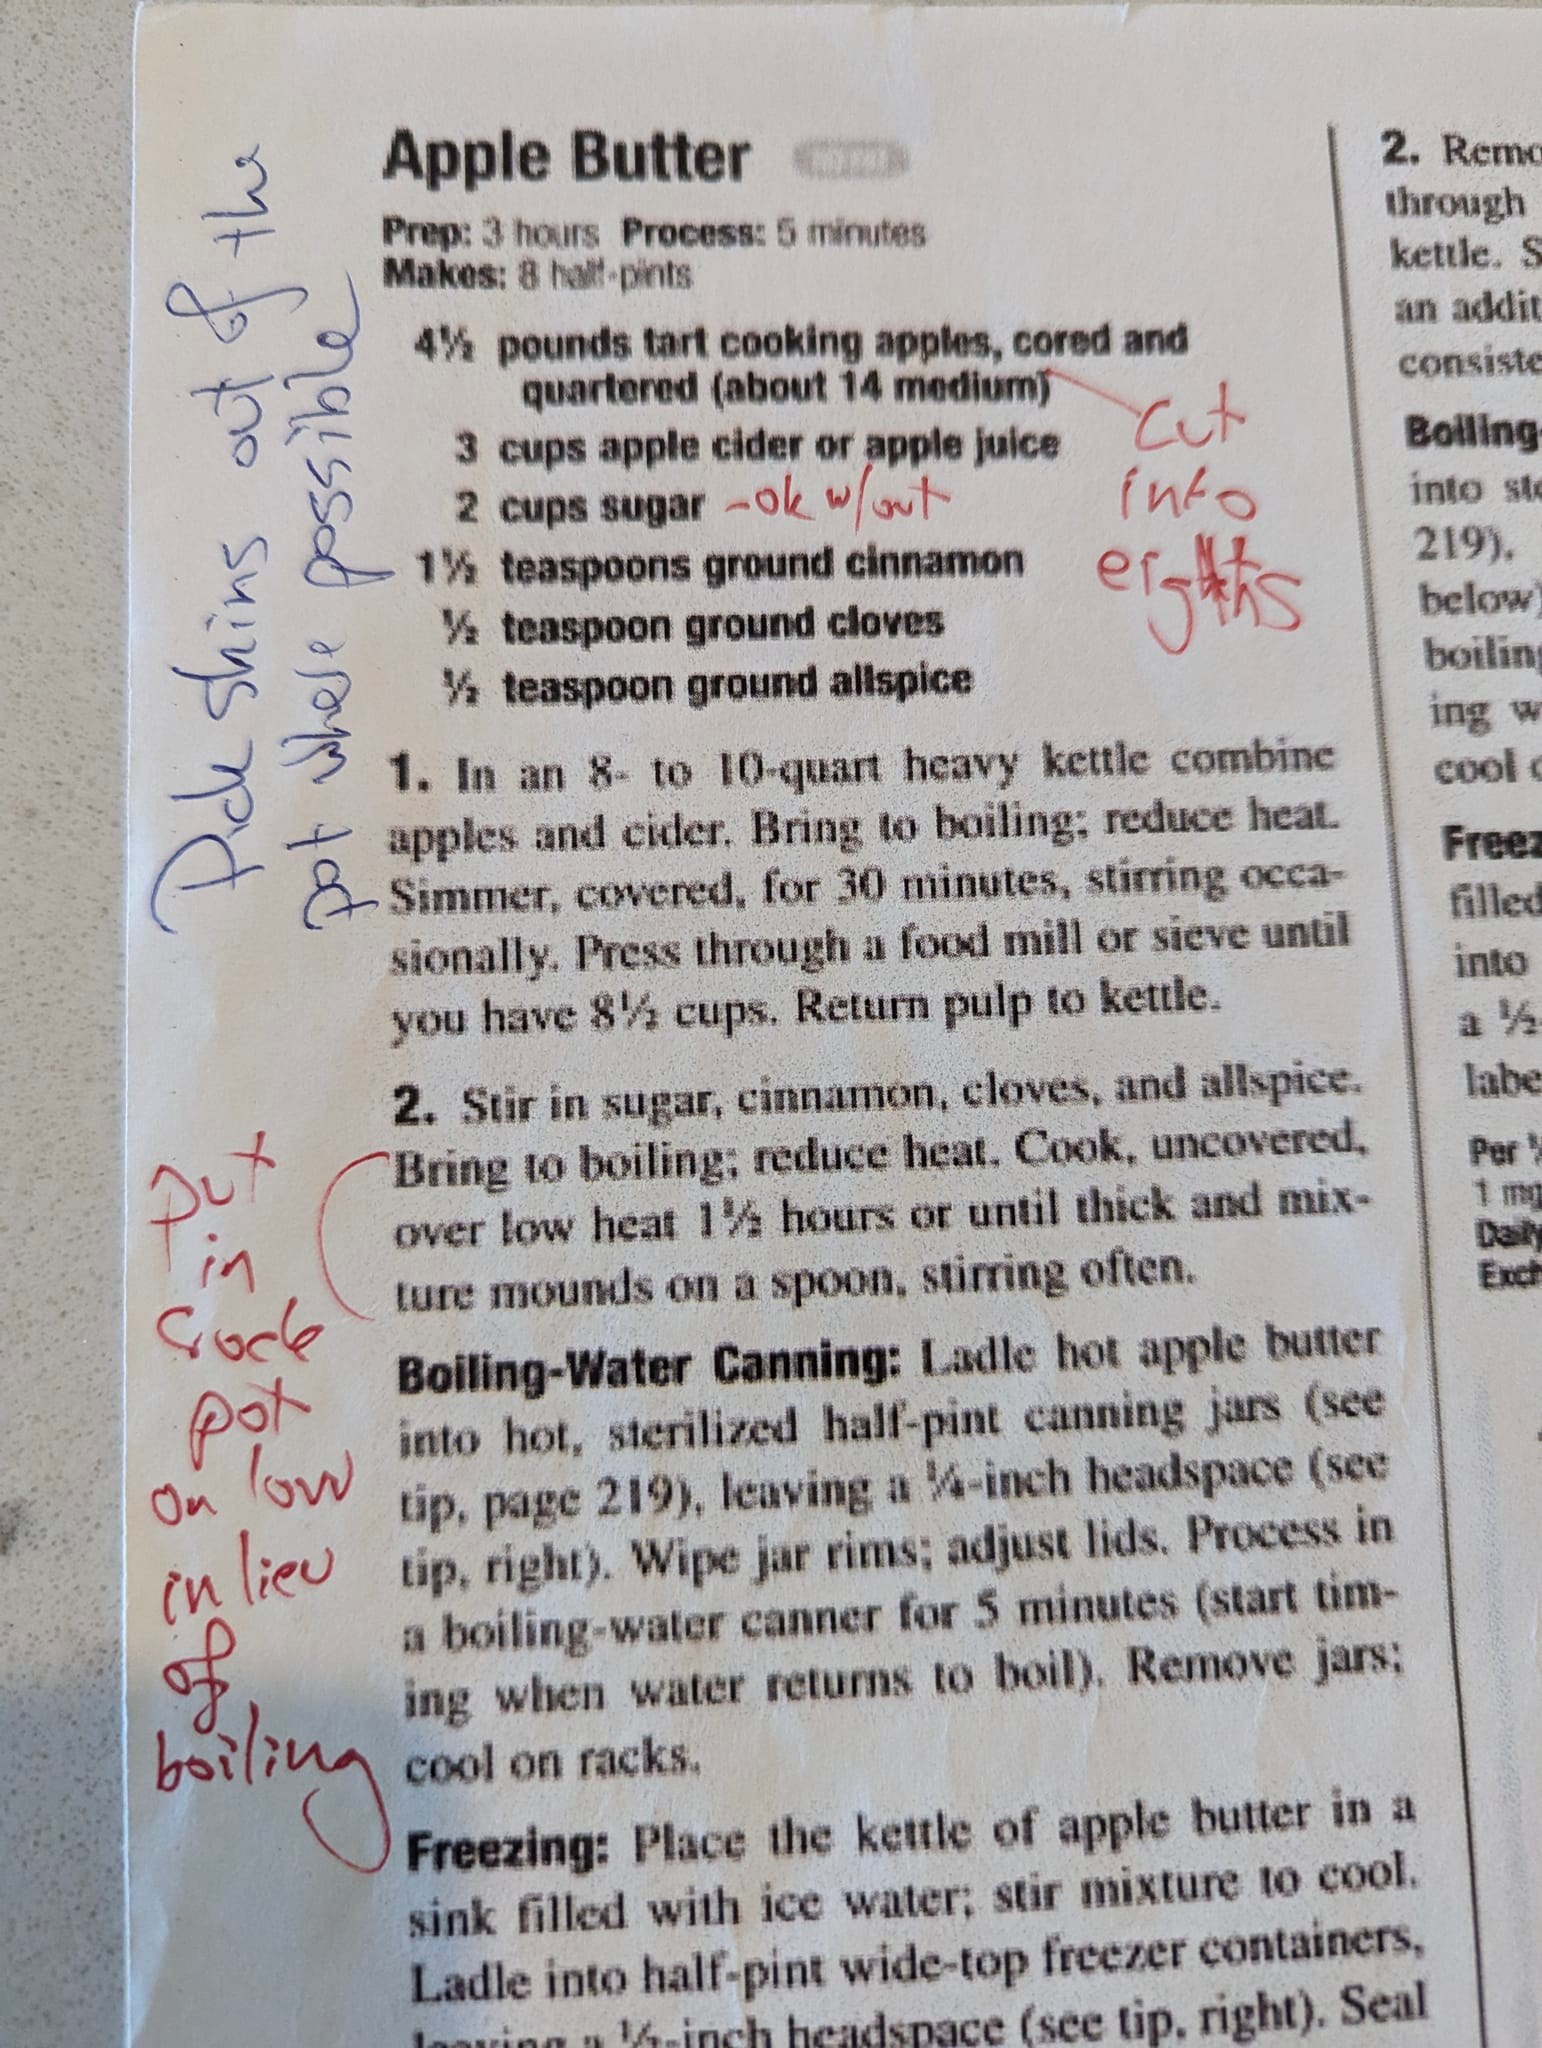 Apple Butter
Prep: 3 hours Process: 5 minutes
Makes: 8 half-pints
4½ pounds tart cooking apples, cored and
quartered (about 14 medium)
3 cups apple cider or apple juice
2 cups sugar
1½ teaspoons ground cinnamon
½ teaspoon ground cloves
½ teaspoon ground allspice
-ok w/out
cut
into
eighths
Pick skins out of the
pot where possible
1. In an 8- to 10-quart heavy kettle combine
apples and cider. Bring to boiling; reduce heat.
Simmer, covered, for 30 minutes, stirring occa-
sionally. Press through a food mill or sieve until
you have 8½ cups. Return pulp to kettle.
2. Stir in sugar, cinnamon, cloves, and allspice.
Bring to boiling; reduce heat. Cook, uncovered,
over low heat 1½ hours or until thick and mix-
ture mounds on a spoon, stirring often.
put
in
crock
pot
on low
in lieu
of
boiling
Boiling-Water Canning: Ladle hot apple butter
into hot, sterilized half-pint canning jars (see
tip, page 219), leaving a ¼-inch headspace (see
tip, right). Wipe jar rims; adjust lids. Process in
a boiling-water canner for 5 minutes (start tim-
ing when water returns to boil). Remove jars;
cool on racks.
Freezing: Place the kettle of apple butter in a
sink filled with ice water; stir mixture to cool.
Ladle into half-pint wide-top freezer containers,
leaving a ½-inch headspace (see tip, right). Seal
2. Remo
through
kettle. S
an addit
consiste
Boiling-
into ste
219),
below)
boiling
ing w
cool o
Freez
filled
into
a ½-
labe
Per ½
1 mg
Daily
Exch